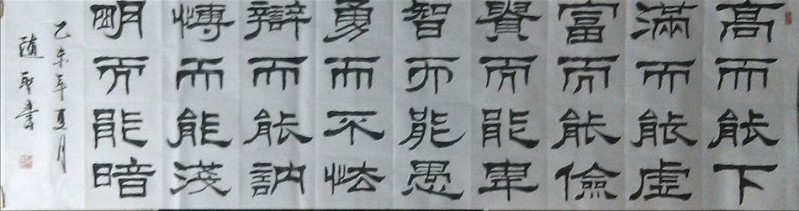 高而能下
滿而能虛
富而能儉
貴而能卑
智而能愚
勇而不怯
辯而能訥
愽而能淺
明而能暗
乙未年夏月
隨 書